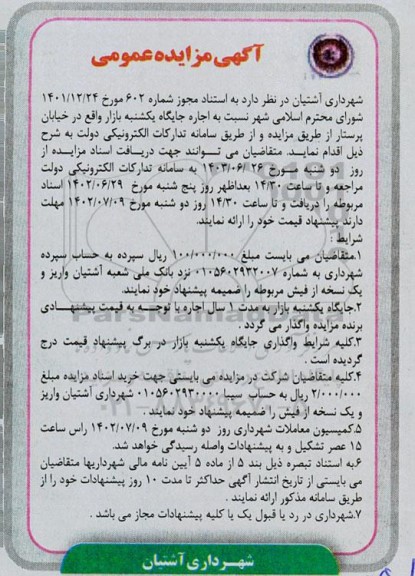 آگهی مزایده عمومی
شهرداری آشتیان در نظر دارد به استناد مجوز شماره ۶۰۲ مورخ ۱۴۰۱/۱۲/۲۴
شورای محترم اسلامی شهر نسبت به اجاره جایگاه یکشنبه بازار واقع در خیابان
پرستار از طریق مزایده و از طریق سامانه تدارکات الکترونیکی دولت به شرح
ذیل اقدام نماید. متقاضیان می توانند جهت دریافت اسناد مزایده از
روز دو شنبه مورخ ۱۴۰۳/۰۶/۲۶ به سامانه تدارکات الکترونیکی دولت
مراجعه و تا ساعت ۱۴/۳۰ بعداظهر روز پنج شنبه مورخ ۱۴۰۲/۰۶/۲۹ اسناد
مربوطه را دریافت و تا ساعت ۱۴/۳۰ روز دو شنبه مورخ ۱۴۰۲/۰۷/۰۹ مهلت
دارند پیشنهاد قیمت خود را ارائه نمایند.
شرایط :
۱.متقاضیان می بایست مبلغ ۱۰۰/۰۰۰/۰۰۰ ریال سپرده به حساب سپرده
شهرداری به شماره ۰۱۰۵۶۰۲۹۳۲۰۰۷ نزد بانک ملی شعبه آشتیان واریز و
یک نسخه از فیش مربوطه را ضمیمه پیشنهاد خود نمایند.
۲.جایگاه یکشنبه بازار بمدت ۱ سال اجاره با توجه به قیمت پیشنهادی
برنده مزایده واگذار می گردد .
۳.کلیه شرایط واگذاری جایگاه یکشنبه بازار در برگ پیشنهاد قیمت درج
گردیده است .
۴.کلیه متقاضیان شرکت در مزایده می بایستی جهت خرید اسناد مزایده مبلغ
۲/۰۰۰/۰۰۰ ریال به حساب سیبا ۰۱۰۵۶۰۲۹۳۰۰۰۱ شهرداری آشتیان واریز
و یک نسخه از فیش را ضمیمه پیشنهاد خود نمایند .
۵.کمیسیون معاملات شهرداری روز دو شنبه مورخ ۱۴۰۲/۰۷/۰۹ راس ساعت
۱۵ عصر تشکیل و به پیشنهادات واصله رسیدگی خواهد شد.
۶.به استناد تبصره ذیل بند ۵ از ماده ۵ آیین نامه مالی شهرداریها متقاضیان
می بایستی از تاریخ انتشار آگهی حداکثر تا مدت ۱۰ روز پیشنهادات خود را از
طریق سامانه مذکور ارائه نمایند .
۷.شهرداری در رد یا قبول یک یا کلیه پیشنهادات مجاز می باشد .
شهرداری آشتیان